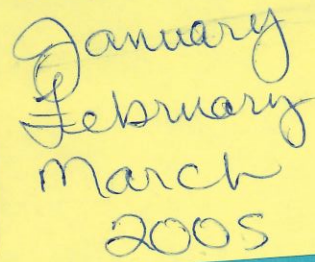 January
February
March
2005